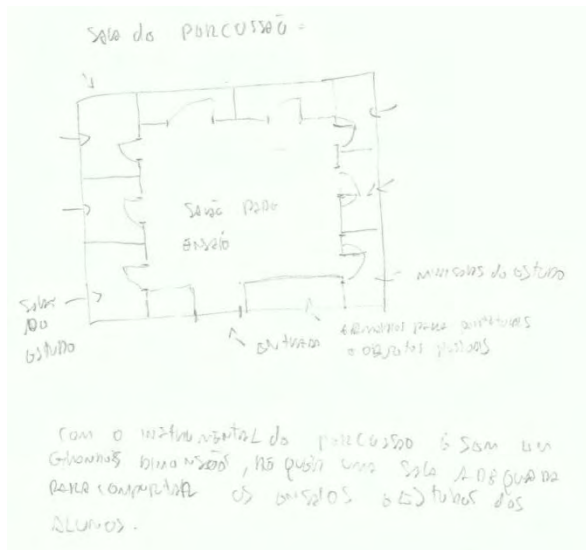 SALA DA PERCUSSÃO =
SALÃO PARA
ENSAIO
MINISALAS DE ESTUDO
SALAS
DE
ESTUDO
ENTRADA
PARA PARTITURAS
E OBJETOS
COM O INSTRUMENTAL DA PERCUSSÃO
DIMENSÃO, UMA SALA ADEQUADA
PARA COMPORTAR OS ENSAIOS E ESTUDOS DOS
ALUNOS.